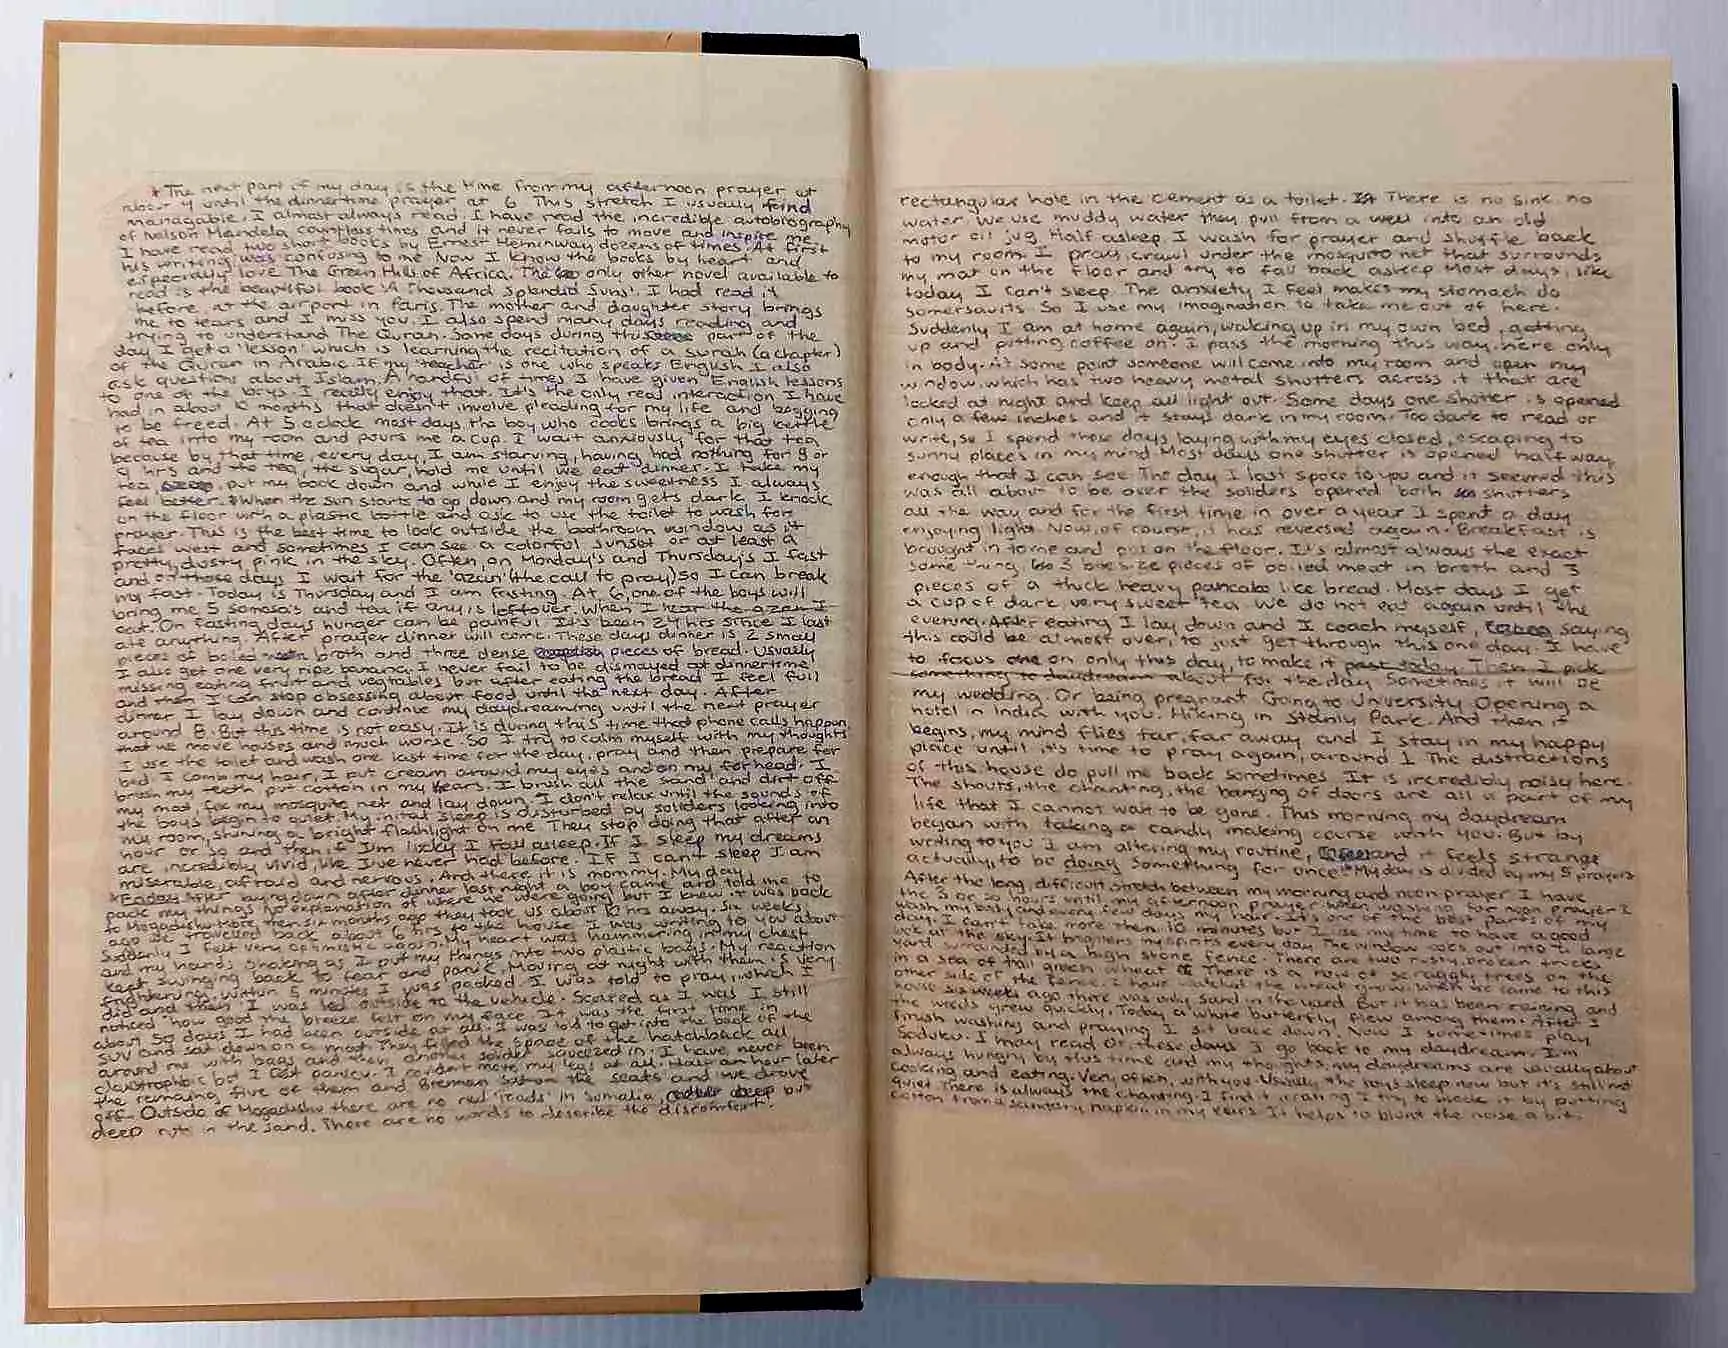 *The next part of my day is the time from my afternoon prayer at
about 4 until the dinnertime prayer at 6. This stretch I usually find
managable. I almost always read. I have read the incredible autobiography
of Nelson Mandela countless times and it never fails to move and inspire me.
I have read two short books by Ernest Heminway dozens of times. At first
his writing was confusing to me. Now I know the books by heart and
especially love The Green Hills of Africa. The only other novel available to
read is the beautiful book 'A Thousand Splendid Suns'. I had read it
before at the airport in Paris. The mother and daughter story brings
me to tears and I miss you. I also spend many days reading and
trying to understand The Quran. Some days during this part of the
day I get a 'lesson' which is learning the recitation of a surah (a chapter)
of the Quran in Arabic. If my teacher is one who speaks English I also
ask questions about Islam. A handful of times I have given English lessons
to one of the boys. I really enjoy that. It's the only real interaction I have
had in about months that doesn't involve pleading for my life and begging
to be freed. At 5 o'clock most days, the boy who cooks brings a big kettle
of tea into my room and pours me a cup. I wait anxiously for that tea
because by that time, every day, I am starving, having had nothing for 8 or
9 hrs and the tea, the sugar, hold me until we eat dinner. I take my
tea, put my book down and while I enjoy the sweetness I always
feel better. *When the sun starts to go down and my room gets dark I knock
on the floor with a plastic bottle and ask to use the toilet to wash for
prayer. This is the best time to look outside the bathroom window as it
faces west and sometimes I can see a colorful sunset or at least a
pretty, dusty pink in the sky. Often, on Monday's and Thursday's I fast
and on those days I wait for the 'azan' (the call to pray) so I can break
my fast. Today is Thursday and I am fasting. At 6, one of the boys will
bring me 5 somosa's and tea if any is leftover. When I hear the azan I
eat. On fasting days hunger can be painful. It's been 24 hrs since I last
ate anything. After prayer dinner will come. These days dinner is 2 small
pieces of boiled broth and three dense pieces of bread. Usually
I also get one very ripe banana. I never fail to be dismayed at dinnertime
missing eating fruit and vegtables but after eating the bread I feel full
and then I can stop obsessing about food until the next day. After
dinner I lay down and continue my daydreaming until the next prayer
around 8. But this time is not easy. It is during this time that phone calls happen,
that we move houses and much worse. So I try to calm myself with my thoughts
I use the toilet and wash one last time for the day, pray and then prepare for
bed. I comb my hair, I put cream around my eyes and on my forhead. I
brush my teeth, put cotton in my ears. I brush all the sand and dirt off
my mat, fix my mosquito net and lay down. I don't relax until the sounds of
the boys begin to quiet. My initial sleep is disturbed by soliders looking into
my room, shining a bright flashlight on me. They stop doing that after an
hour or so and then if I'm lucky I fall asleep. If I sleep my dreams
are incredibly vivid, like I've never had before. If I can't sleep I am
miserable, afraid and nervous. And there it is mommy. My day.
*Friday After laying down after dinner last night a boy came and told me to
pack my things. No explanation of where we were going but I knew it was back
to Mogadishu. More then six months ago they took us about hrs away. Six weeks
ago we traveled back about 6 hrs to the house I was writing to you about.
Suddenly I felt very optimistic again. My heart was hammering in my chest
and my hands shaking as I put my things into two plastic bags. My reaction
kept swinging back to fear and panic. Moving at night with them is very
frightening. Within 5 minutes I was packed. I was told to pray, which I
did and then I was led outside to the vehicle. Scared as I was I still
noticed how good the breeze felt on my face. It was the first time in
about 50 days I had been outside at all. I was told to get into the back of the
SUV and sat down on a mat. They filled the space of the hatchback all
around me with bags and then another solider squeezed in. I have never been
claustrophobic but I felt panicy. I couldn't move my legs at all. Half an hour later
the remaining five of them and sat on the seats and we drove
off. Outside of Mogadishu there are no real 'roads' in Somalia, but
deep ruts in the sand. There are no words to describe the discomfort.
rectangular hole in the cement as a toilet. There is no sink, no
water. We use muddy water they pull from a well into an old
motor oil jug. Half asleep, I wash for prayer and shuffle back
to my room. I pray, crawl under the mosquito net that surrounds
my mat on the floor and try to fall back asleep. Most days, like
today I can't sleep. The anxiety I feel makes my stomach do
somersaults. So I use my imagination to take me out of here.
Suddenly I am at home again, waking up in my own bed, getting
up and putting coffee on. I pass the morning this way, here only
in body. At some point someone will come into my room and open my
window, which has two heavy metal shutters across it that are
locked at night and keep all light out. Some days one shutter is opened
only a few inches and it stays dark in my room. Too dark to read or
write, so I spend those days laying with my eyes closed, escaping to
sunny places in my mind. Most days one shutter is opened half way,
enough that I can see. The day I last spoke to you and it seemed this
was all about to be over the soliders opened both shutters
all the way and for the first time in over a year I spent a day
enjoying light. Now, of course, it has reversed again. Breakfast is
brought in to me and put on the floor. It's almost always the exact
same thing, 3 bite size pieces of boiled meat in broth and 3
pieces of a thick heavy pancake like bread. Most days I get
a cup of dark, very sweet tea. We do not eat again until the
evening. After eating I lay down and I coach myself, saying
this could be almost over, to just get through this one day. I have
to focus on only this day, to make it past today. Then I pick
something to daydream about for the day. Sometimes it will be
my wedding. Or being pregnant. Going to University. Opening a
hotel in India with you. Hiking in Stanly Park. And then it
begins, my mind flies far, far away and I stay in my happy
place until it's time to pray again, around 1. The distractions
of this house do pull me back sometimes. It is incredibly noisy here.
The shouts, the chanting, the banging of doors are all a part of my
life that I cannot wait to be gone. This morning my daydream
began with taking a candy making course with you. But by
writing to you I am altering my routine, and it feels strange
actually, to be doing something for once. *My day is divided by my 5 prayers
After the long, difficult stretch between my morning and noon prayer I have
the 3 or so hours until my afternoon prayer. When washing for noon prayer I
wash my body and every few days my hair. It's one of the best parts of my
day. I can't take more then 10 minutes but I use my time to have a good
look at the sky. It brightens my spirits every day. The window looks out into a large
yard surrounded by a high stone fence. There are two rusty, broken trucks
in a sea of tall green wheat. There is a row of scraggly trees on the
other side of the fence. I have watched the wheat grow. When we came to this
house six weeks ago there was only sand in the yard. But it has been raining and
the weeds grew quickly. Today a white butterfly flew among them. After I
finish washing and praying I sit back down. Now I sometimes play
Soduku. I may read or these days I go back to my daydream. I'm
always hungry by this time and my thoughts, my daydreams are usually about
cooking and eating. Very often, with you. Usually the boys sleep now but it's still not
quiet. There is always the chanting. I find it grating. I try to block it by putting
cotton from a sanitary napkin in my ears. It helps to blunt the noise a bit.